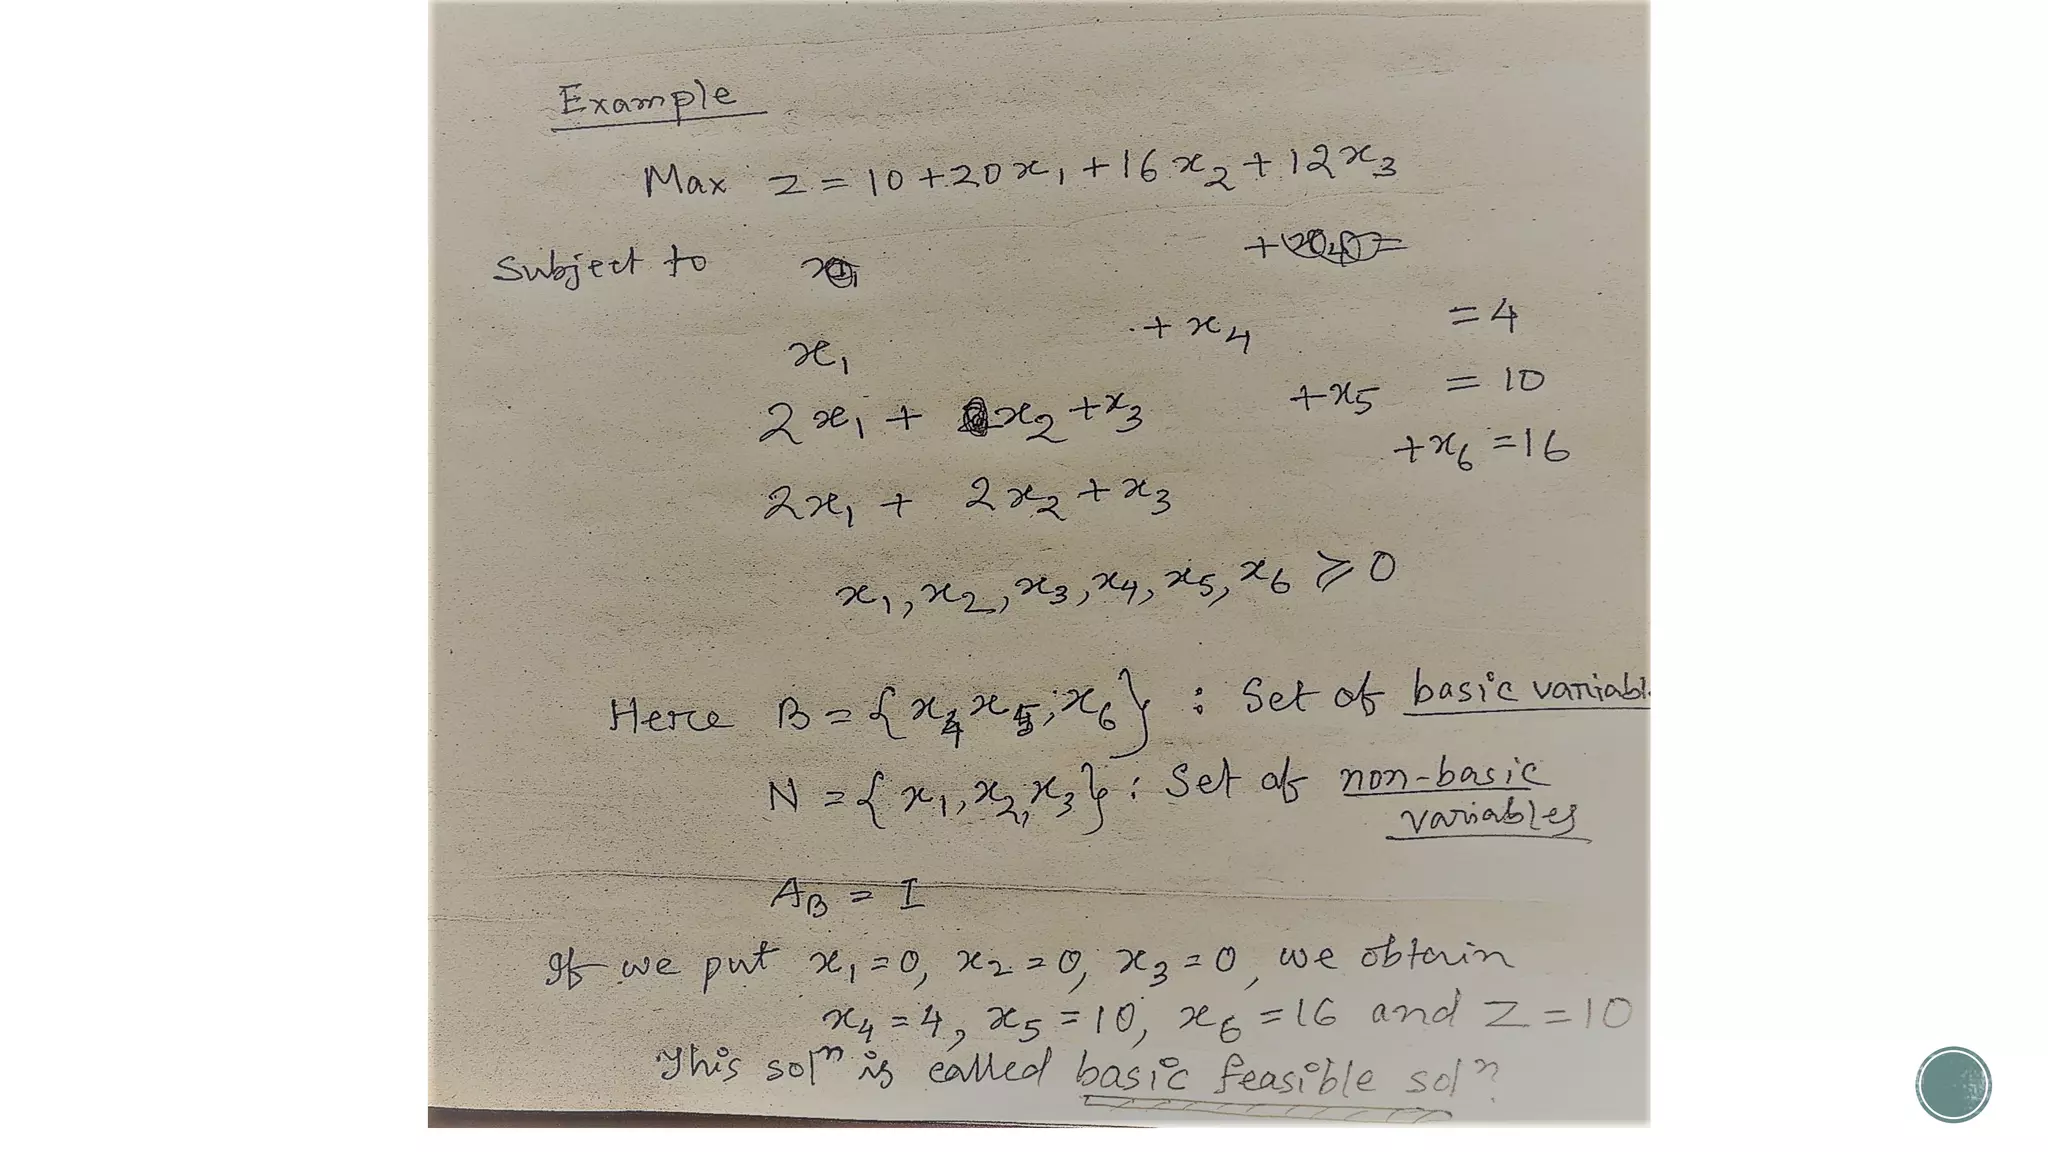 Example
Max z = 10 + 20x₁ + 16x₂ + 12x₃
Subject to
x₁ + x₄ = 4
2x₁ + x₂ + x₃ + x₅ = 10
2x₁ + 2x₂ + x₃ + x₆ = 16
x₁, x₂, x₃, x₄, x₅, x₆ ⩾ 0
Here B = {x₄ x₅, x₆} : Set of basic variabl
N = {x₁, x₂, x₃} : Set of non-basic
variables
A_B = I
If we put x₁ = 0, x₂ = 0, x₃ = 0, we obtain
x₄ = 4, x₅ = 10, x₆ = 16 and z = 10
This solⁿ is called basic feasible solⁿ.